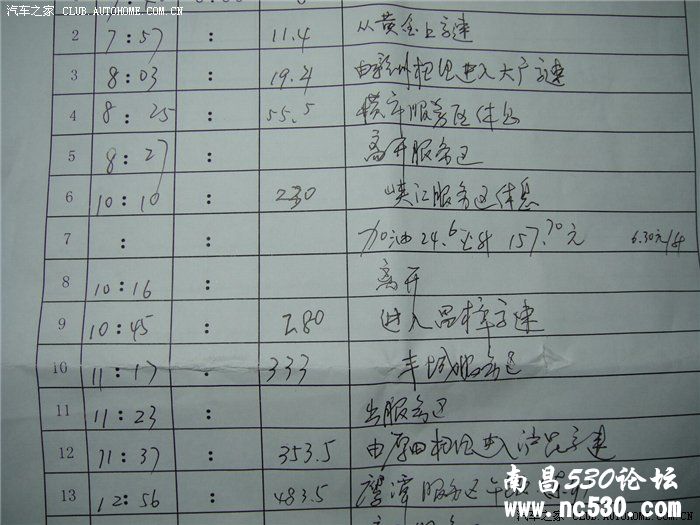 汽车之家 CLUB.AUTOHOME.COM.CN
2 7:57 : 11.4 从黄金上高速
3 8:03 : 19.4 由 枢纽进入大广高速
4 8:25 : 55.5 横市服务区休息
5 8:27 : 离开服务区
6 10:10 : 230 峡江服务区休息
7 : : 加油24.6 157.70元 6.30元/升
8 10:16 : 离开
9 10:45 : 280 进入昌樟高速
10 11:17 : 333 丰城服务区
11 11:23 : 出服务区
12 11:37 : 353.5 由厚田枢纽进入沪昆高速
13 12:56 : 483.5 鹰潭服务区午
南昌530论坛
www.nc530.com
汽车之家 CLUB.AUTOHOME.COM.CN